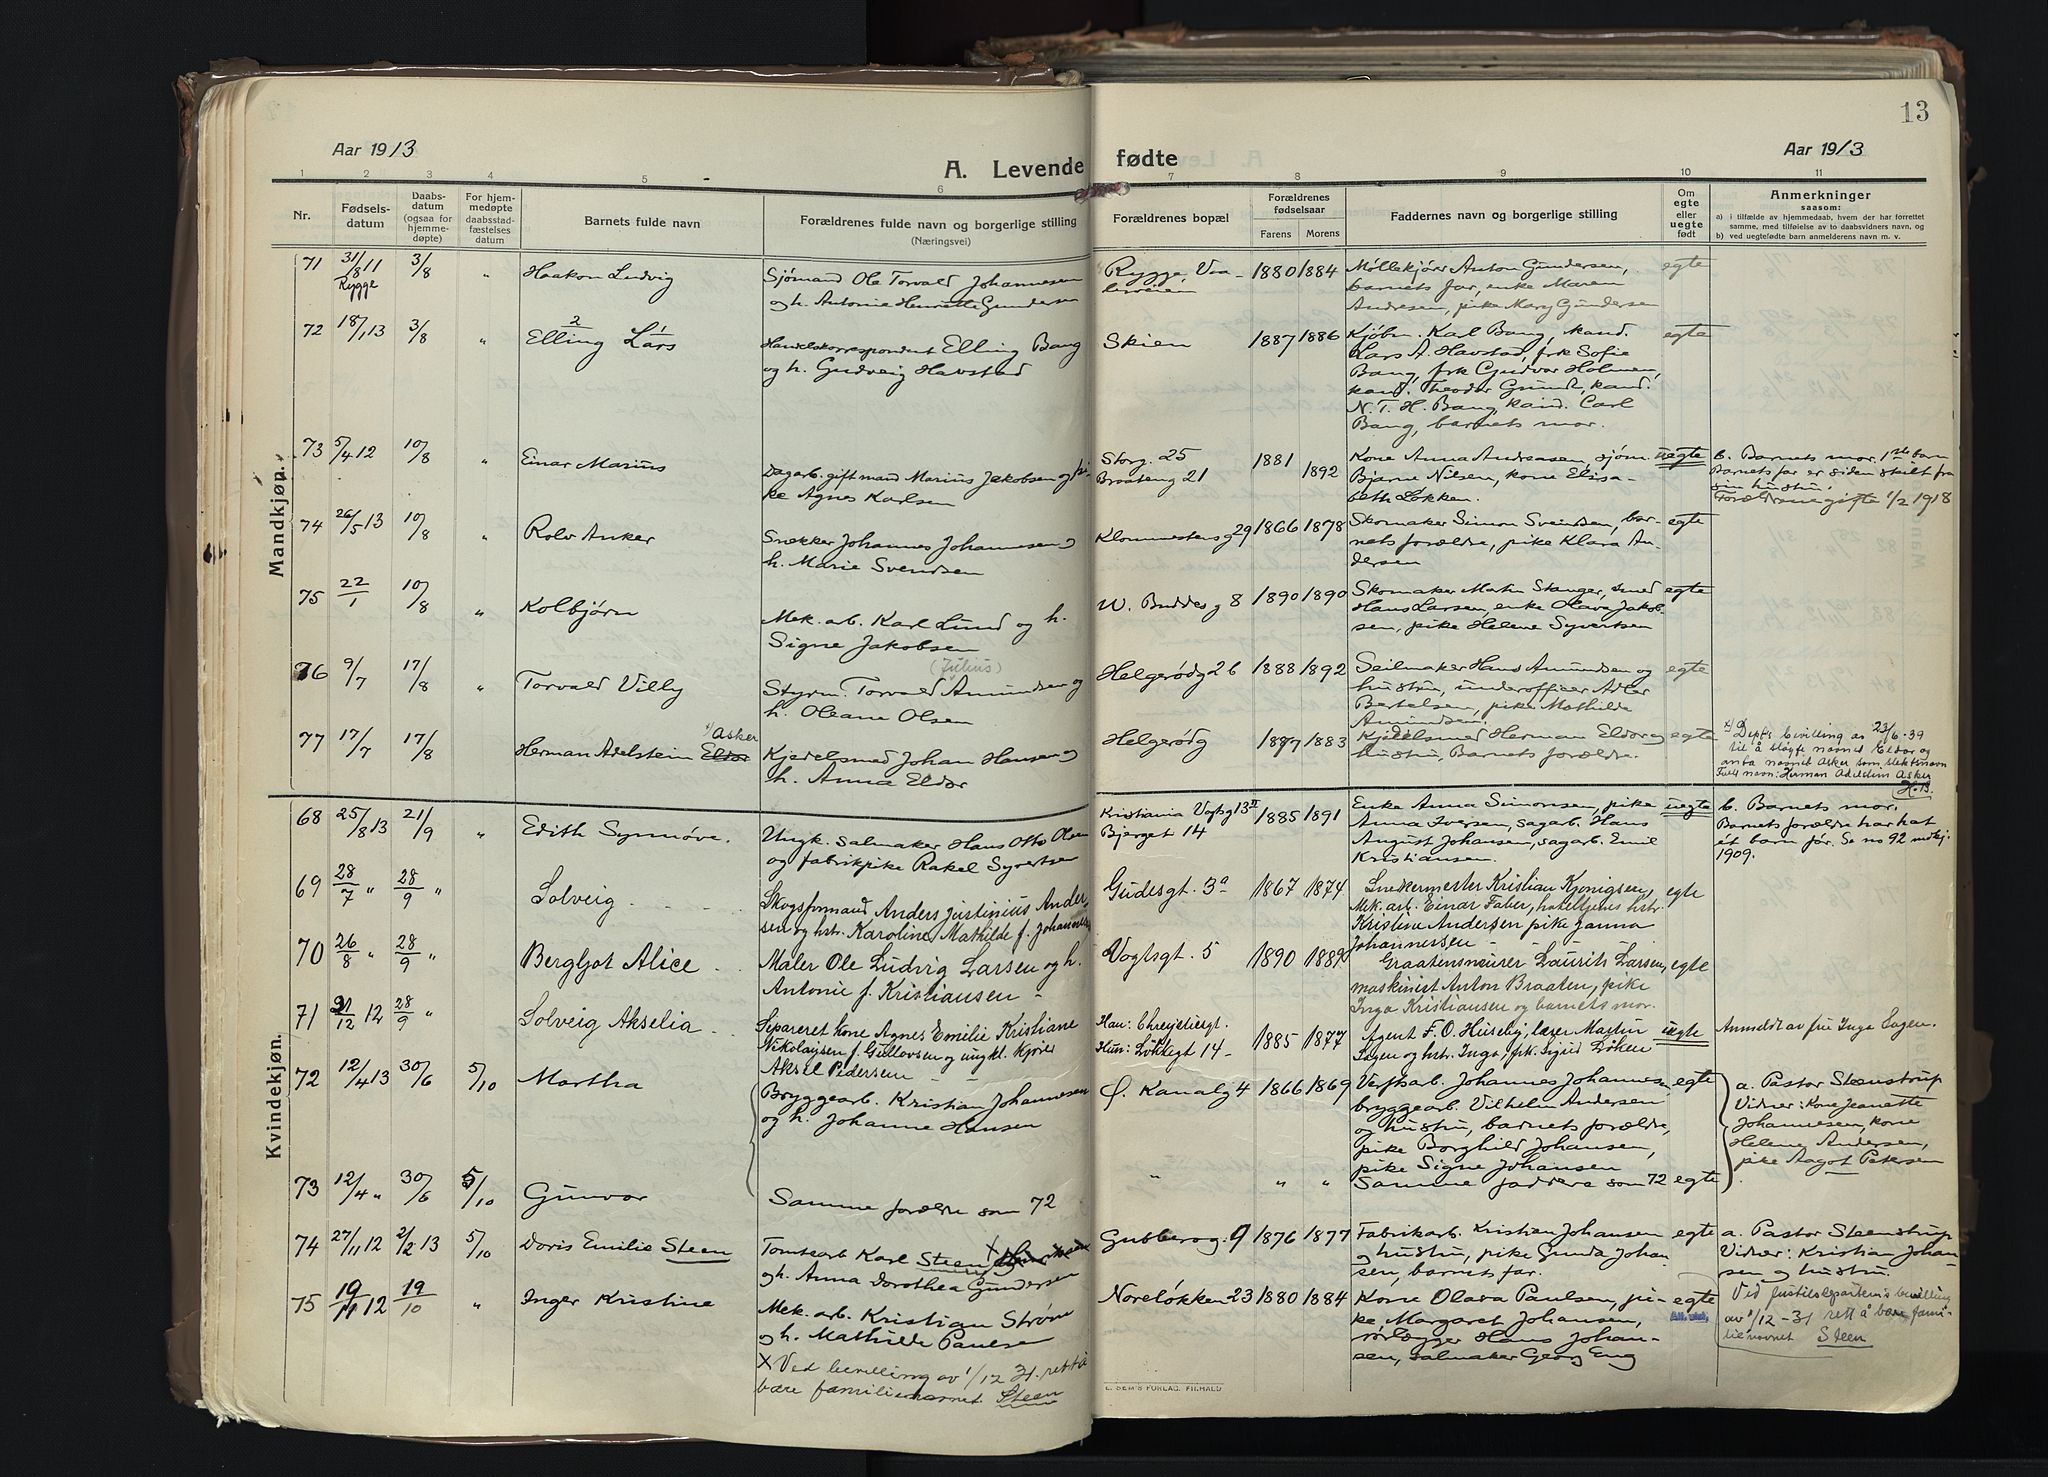 13
Aar 1913
A. Levende fødte
Aar 1913
1 2 3 4 5 6 7 8 9 10 11
Nr.
Fødsels-
datum
Daabs-
datum
(ogsaa for
hjemme-
døpte)
For hjem-
medøpte
daabsstad-
fæstelses
datum
Barnets fulde navn
Forældrenes fulde navn og borgerlige stilling
(Næringsvei)
Forældrenes bopæl
Forældrenes
fødselsaar
Farens Morens
Faddernes navn og borgerlige stilling
Om
egte
eller
uegte
født
Anmerkninger
saasom:
a) i tilfælde av hjemmedaab, hvem der har forrettet
samme, med tilføielse av to daabsvidners navn, og
b) ved uegtefødte barn anmelderens navn m. v.
Mandkjøn.
71 31/8 11 3/8 " Haakon Ludvig
Rygge
Sjømand Ole Torvald Johannesen
og h. Antonie Henriette Gundersen
Rygge, Vaa-
lerveien
1880 1884
Møllekjører Anton Gundersen,
barnets far, enke Maren
Andresen, pike Mary Gundersen
egte
72 18/1 13 3/8 " Elling Lars
2 1
Handelskorrespondent Elling Bang
og h. Gudveig Havstad
Skien
1887 1886
Kjøbm. Karl Bang, kand.
Lars A. Havstad, frk Sofie
Bang, frk Gudvor Holmen,
kand. Theodor Grundt, kand.
N. T. H. Bang, kand. Carl
Bang, barnets mor.
egte
73 5/4 12 10/8 " Einar Marius
Dagarb. gift mand Marius Jakobsen og pi-
ke Agnes Karlsen
Storg. 25
Braaten g 21
1881 1892
Kone Anna Andreasen, sjøm.
Bjarne Nilsen, kone Elisa-
beth Løkken.
uegte
b. Barnets mor. 1ste barn
Barnets far er siden skilt fra
sin hustru.
Forældrene gifte 1/2 1918
74 26/5 13 10/8 " Rolv Anker
Snekker Johannes Johannesen og
h. Marie Svendsen
Klommestens g 29
1866 1878
Skomaker Simon Svendsen, bar-
nets forældre, pike Klara An-
dersen
egte
75 22/1 10/8 " Kolbjørn
Mek. arb. Karl Lund og h.
Signe Jakobsen
W. Buddes g 8
1890 1890
Skomaker Martin Stanger, smed
Hans Larsen, enke Olava Jakob-
sen, pike Helene Syvertsen
egte
76 9/7 17/8 " Torvald Villy
(Julius)
Styrm. Torvald Amundsen og
h. Oleane Olsen
Helgerødg 26
1888 1892
Seilmaker Hans Amundsen og
hustru, underofficer Adler
Bertelsen, pike Mathilde
Amundsen.
egte
77 17/7 17/8 Herman Adelstein Eldor
x) Asker
Kjedelsmed Johan Hansen og
h. Anna Eldor
Helgerødg
1887 1883
Kjedelsmed Herman Eldor og
hustru, Barnets forældre.
egte
x) Dept's bevilling av 23/6-39
til å sløyfe navnet Eldor og
anta navnet Asker som slektsnavn
Fullt navn: Herman Adelstein Asker
H.B.
Kvindekjøn.
68 25/8 13 21/9 " Edith Synnøve.
Ungk. salmaker Hans Otto Olsen
og fabrikpike Rakel Syvertsen
Kristiania Vogtsg 13 II
Bjerget 14
1885 1891
Enke Anna Simonsen, pike
Anna Iversen, sagarb. Hans
August Johansen, sagarb. Emil
Kristiansen.
uegte
b. Barnets mor.
Barnets forældre har hat
ét barn før. Se no 92 mdkj.
1909.
69 28/7 " 28/9 " Solveig
Skogsformand Anders Justinius Ander-
sen og hstr. Karoline Mathilde f. Johannessen
Gudesgt. 3a
1867 1874
Snekermester Kristian Kjønigsen,
Mek. arb. Einar Faber, hoteltjeners hstr.
Kristine Andersen pike Janna
Johannessen
egte
70 26/8 " 28/9 " Bergljot Alice
Maler Ole Ludvig Larsen og h.
Antonie f. Kristiansen -
Vogtsgt. 5
1890 1889
Graastensmurer Laurits Larsen,
maskinist Anton Braaten, pike
Inga Kristiansen og barnets mor.
egte
71 21/12 12 28/9 " Solveig Akselia
Separeret kone Agnes Emilie Kristiane
Nikolaysen f. Gullovsen og ungk. kjører
Aksel Pedersen
Han: Chrystiesgt.
Hun: Løkkegt 14 -
1885 1877
Agent F. O. Huseby, lærer Martin
Sagen og hstr. Inga, frk. Sigrid Løken
uegte
Anmeldt av fru Inga Sagen.
72 12/4 13 30/6 5/10 Martha
Bryggearb. Kristian Johannesen
og h. Johanne Hansen
Ø. Kanalg 4
1866 1869
Verftsarb. Johannes Johannesen,
bryggearb. Vilhelm Andersen
og hustru, barnets forældre,
pike Borghild Johansen,
pike Signe Johansen
egte
a. Pastor Steenstrup
Vidner: Kone Jeanette
Johannesen, kone
Helene Andersen,
pike Aagot Petersen
73 12/4 " 30/6 5/10 Gunvor
Samme forældre som 72
" " "
Samme faddere som 72
egte
74 27/11 12 2/2 13 5/10 Doris Emilie Steen
Tomtearb Karl Steen x
og h. Anna Dorothea Gundersen
Gubberog. 9
1876 1877
Fabrikarb. Kristian Johansen
og hustru, pike Gunda Johan-
sen, barnets far.
egte
a. Pastor Steenstrup
Vidner: Kristian Johan-
sen og hustru.
75 19/11 12 19/10 " Inger Kristine
Mek. arb. Kristian Strøm
og h. Mathilde Paulsen
Noreløkken 23
1880 1884
Kone Olava Paulsen, pi-
ke Margaret Johansen,
rørlægger Hans Johan-
sen, salmaker Georg Eng
egte
Ved Justisdepartements bevilling
av 1/12-31 rett å bære fami-
lienavnet Steen
x Ved bevilling av 1/12 31. rett til å
bære familienavnet Steen
E. SEM'S FORLAG. FR.HALD